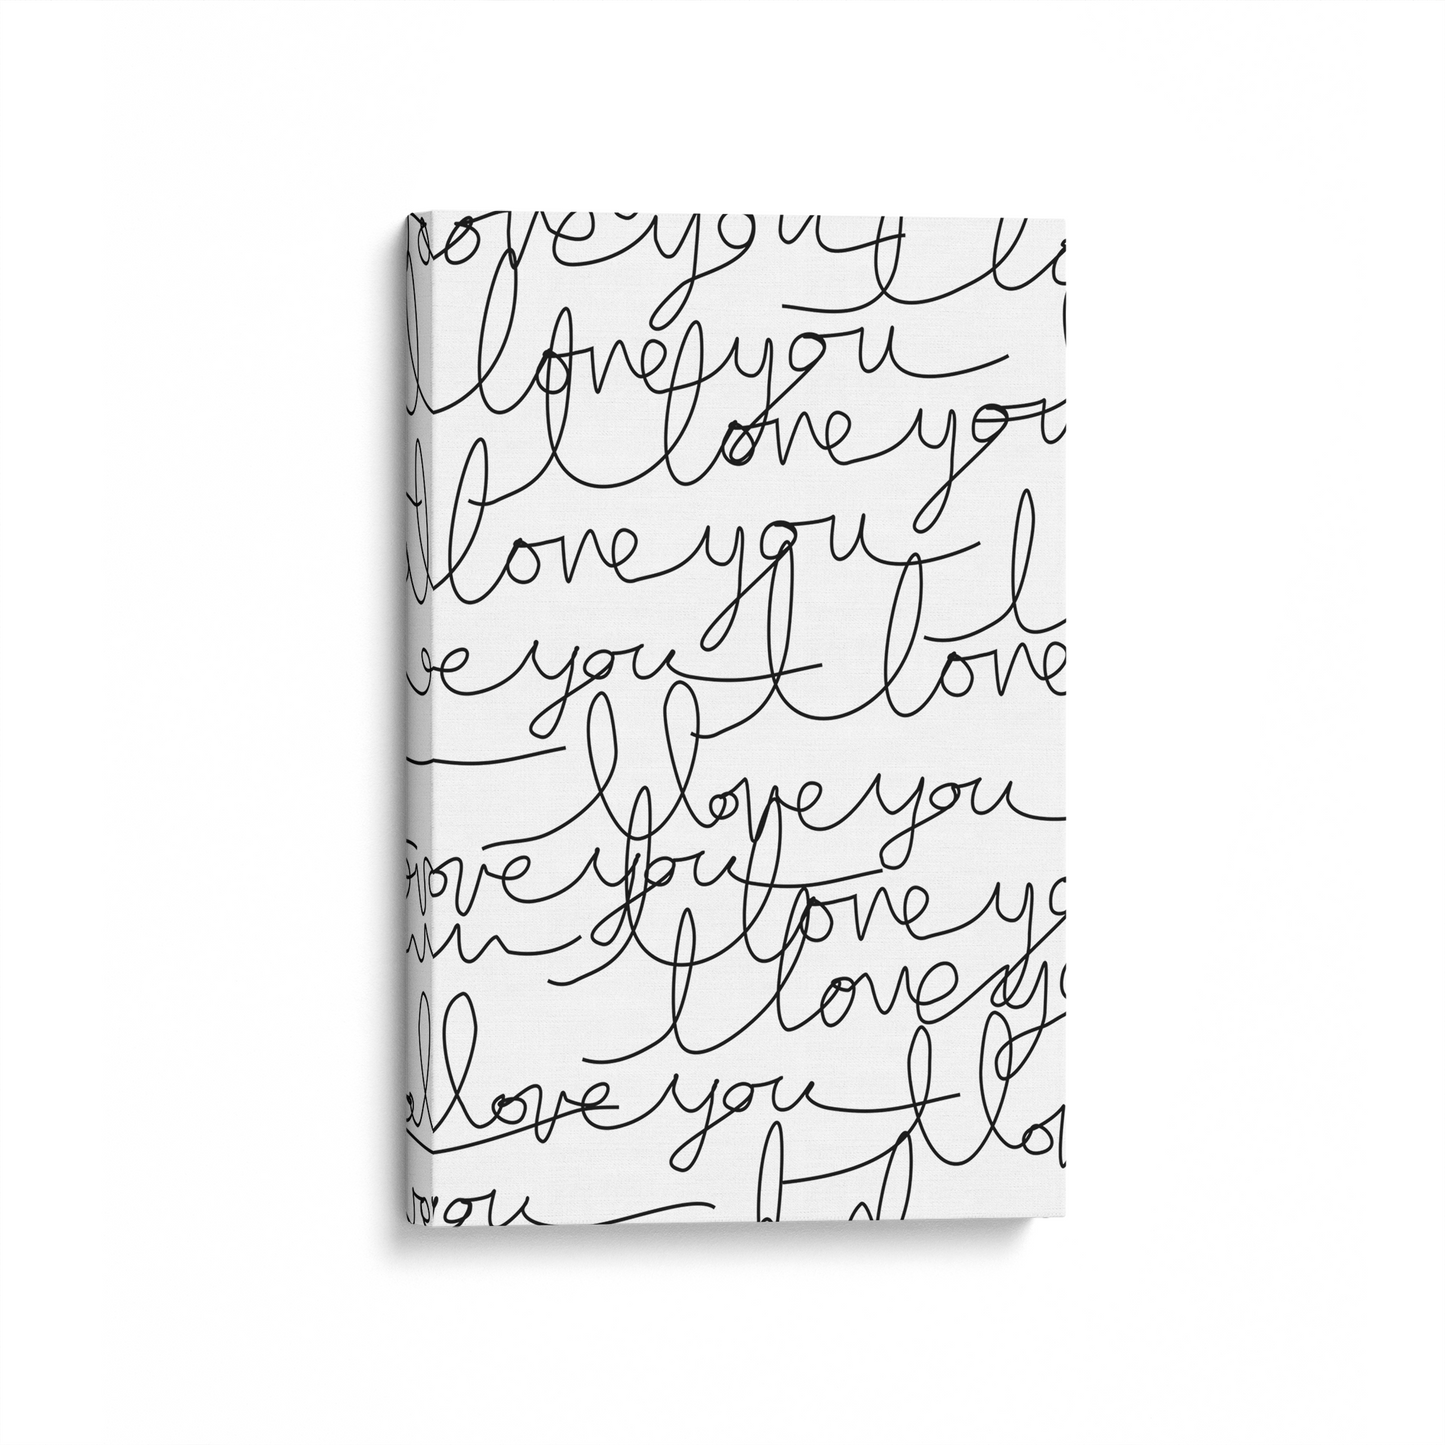 love you I lo
I love you
I love you
I love you
I love
ve you
I love you
love you
I love yo
I love yo
I love you
I lo
you